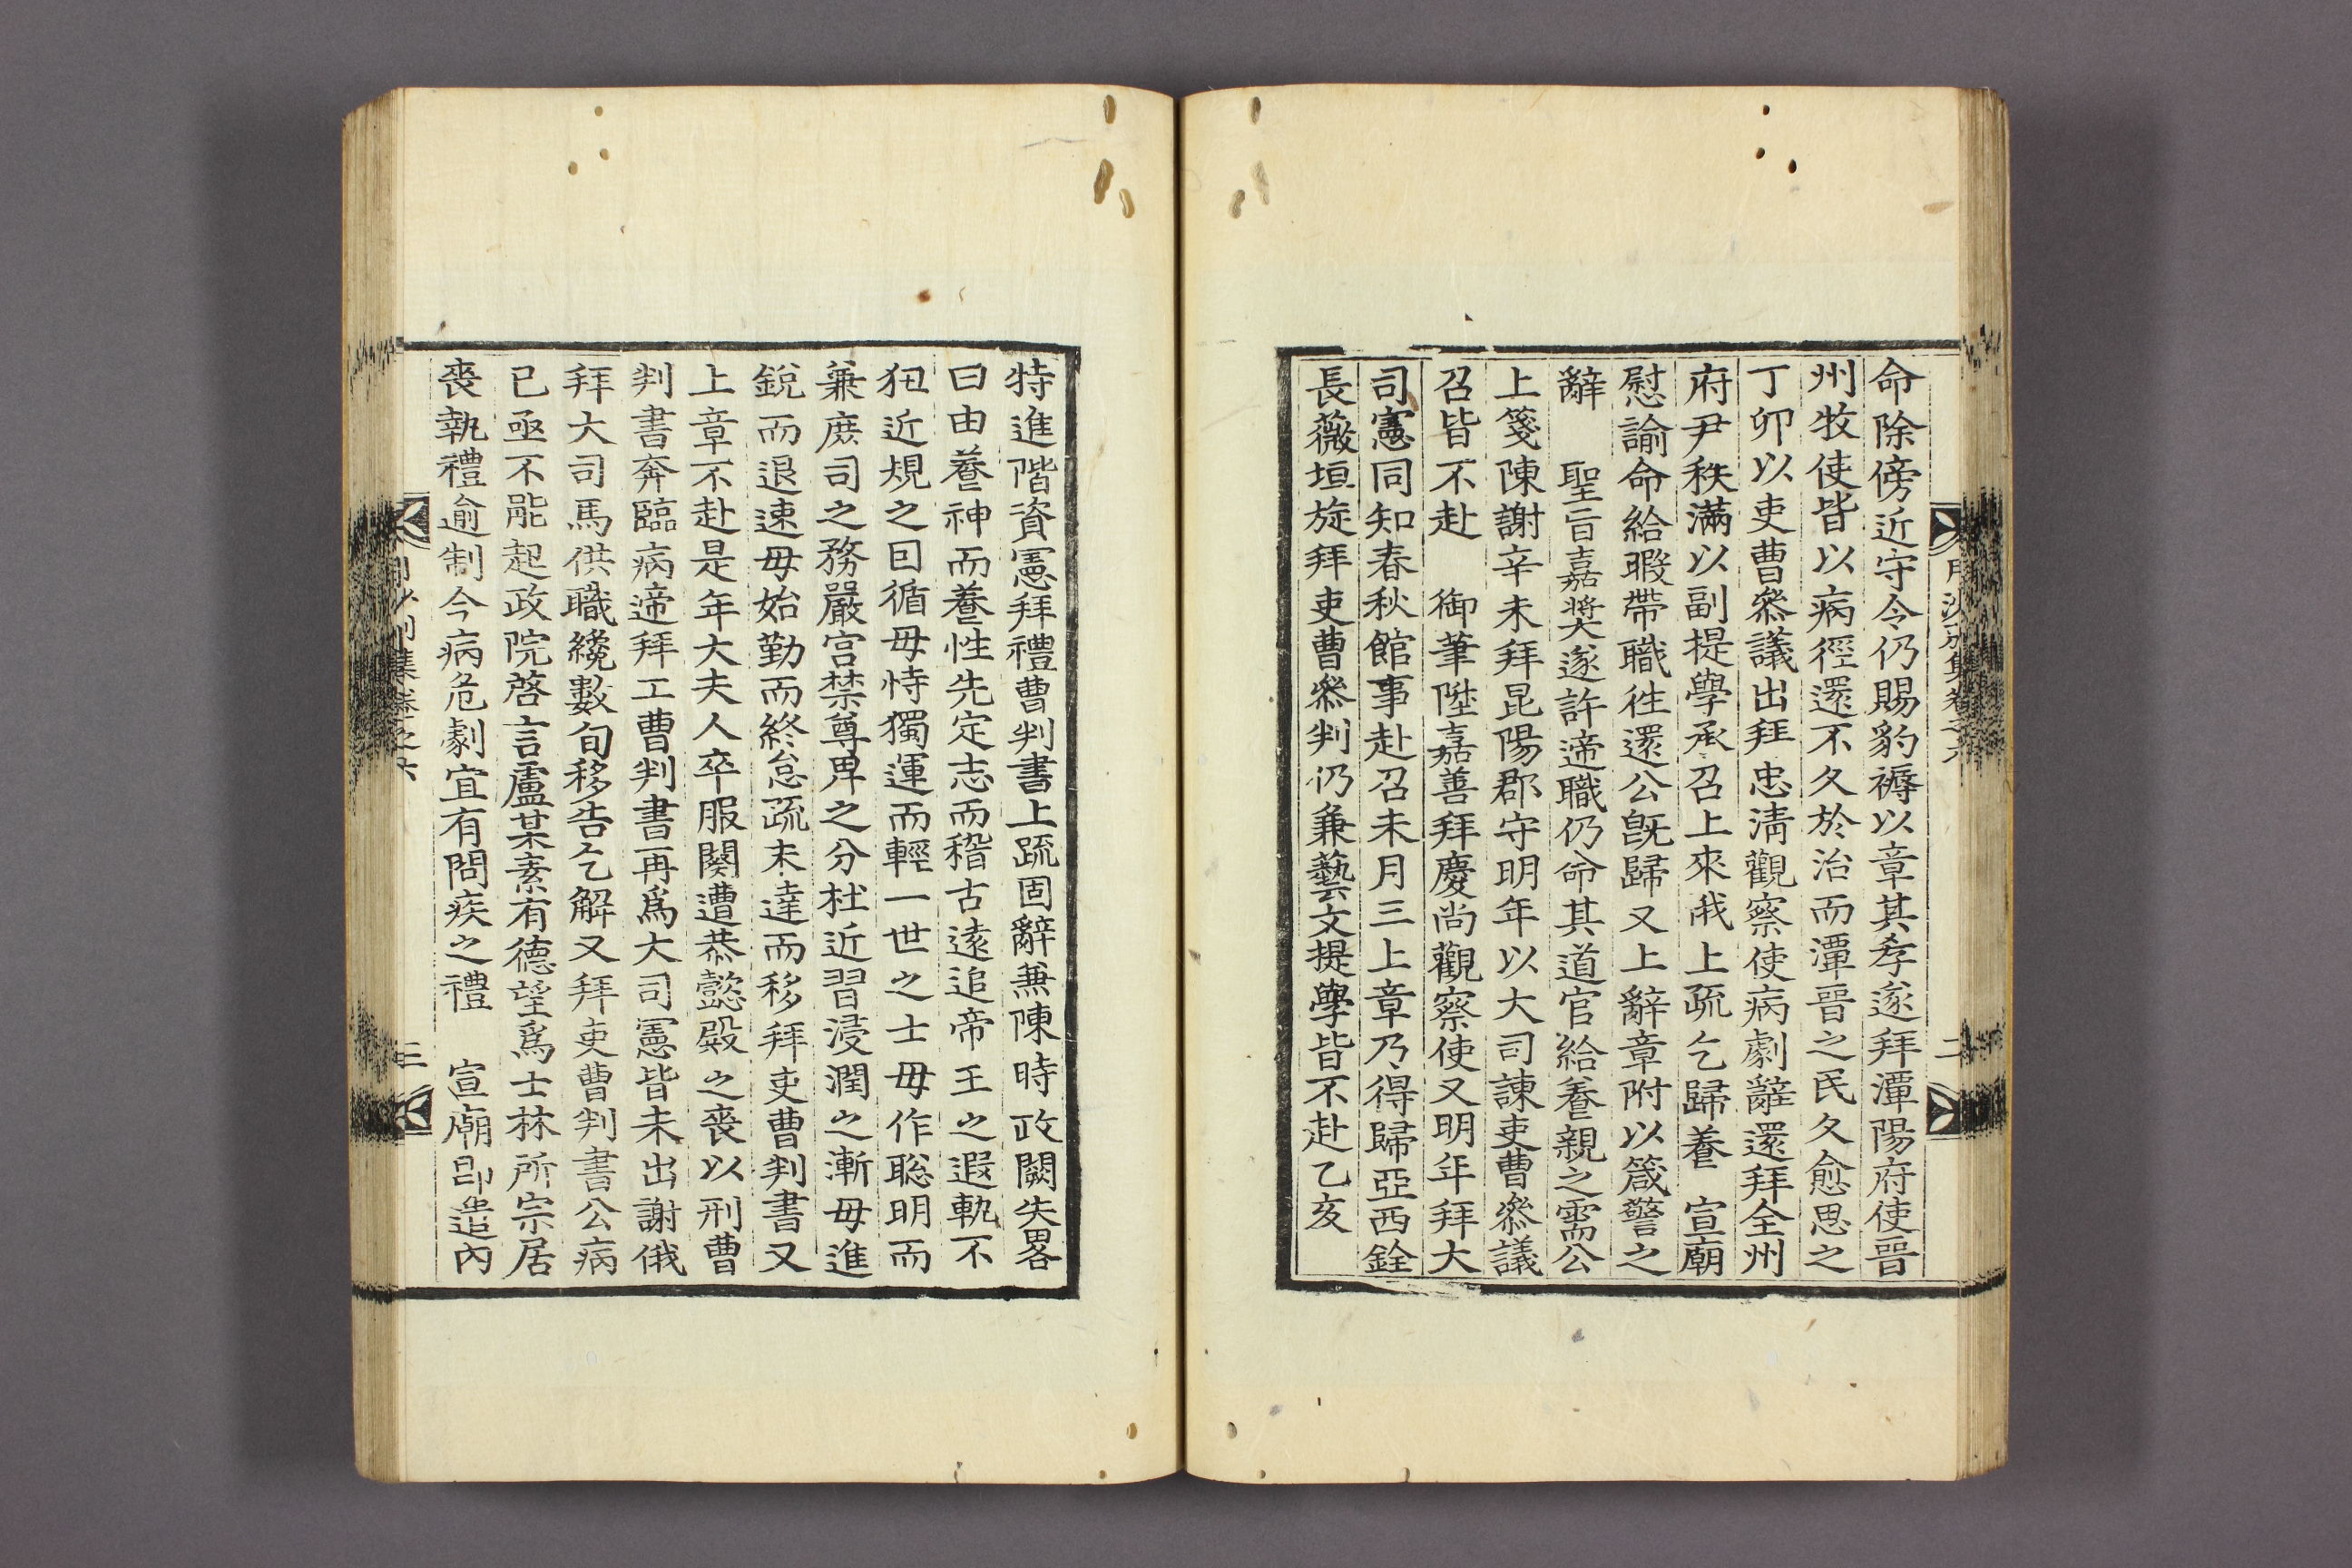 月沙別集卷之六
二
命除傍近守令仍賜豹褥以章其孝遂拜潭陽府使晉
州牧使皆以病徑還不久於治而潭晉之民久愈思之
丁卯以吏曹叅議出拜忠淸觀察使病劇辭還拜全州
府尹秩滿以副提學承召上來俄上疏乞歸養 宣廟
慰諭命給暇帶職徃還公旣歸又上辭章附以箴警之
辭 聖旨嘉奬遂許遆職仍命其道官給養親之需公
上箋陳謝辛未拜昆陽郡守明年以大司諫吏曹叅議
召皆不赴 御筆陞嘉善拜慶尚觀察使又明年拜大
司憲同知春秋館事赴召未月三上章乃得歸亞西銓
長薇垣旋拜吏曹叅判仍兼藝文提學皆不赴乙亥
特進階資憲拜禮曹判書上疏固辭兼陳時政闕失畧
曰由養神而養性先定志而稽古遠追帝王之遐軌不
狃近規之囙循毋恃獨運而輕一世之士毋作聡明而
兼庶司之務嚴宫禁尊卑之分杜近習浸潤之漸毋進
銳而退速毋始勤而終怠疏未達而移拜吏曹判書又
上章不赴是年大夫人卒服闋遭恭懿殿之喪以刑曹
判書奔臨病遆拜工曹判書再爲大司憲皆未出謝俄
拜大司馬供職纔數旬移告乞解又拜吏曹判書公病
已亟不能起政院啓言盧某素有德望爲士林所宗居
喪執禮逾制今病危劇宜有問疾之禮 宣廟卽遣內
集卷之六
三